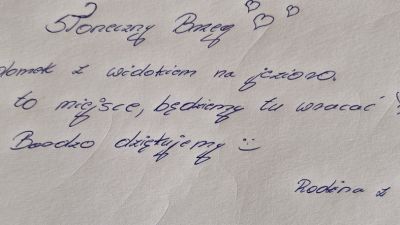 Słoneczny Brzeg
domek z widokiem na jezioro.
to miejsce, będziemy tu wracać
Bardzo dziękujemy :)
Rodzina z